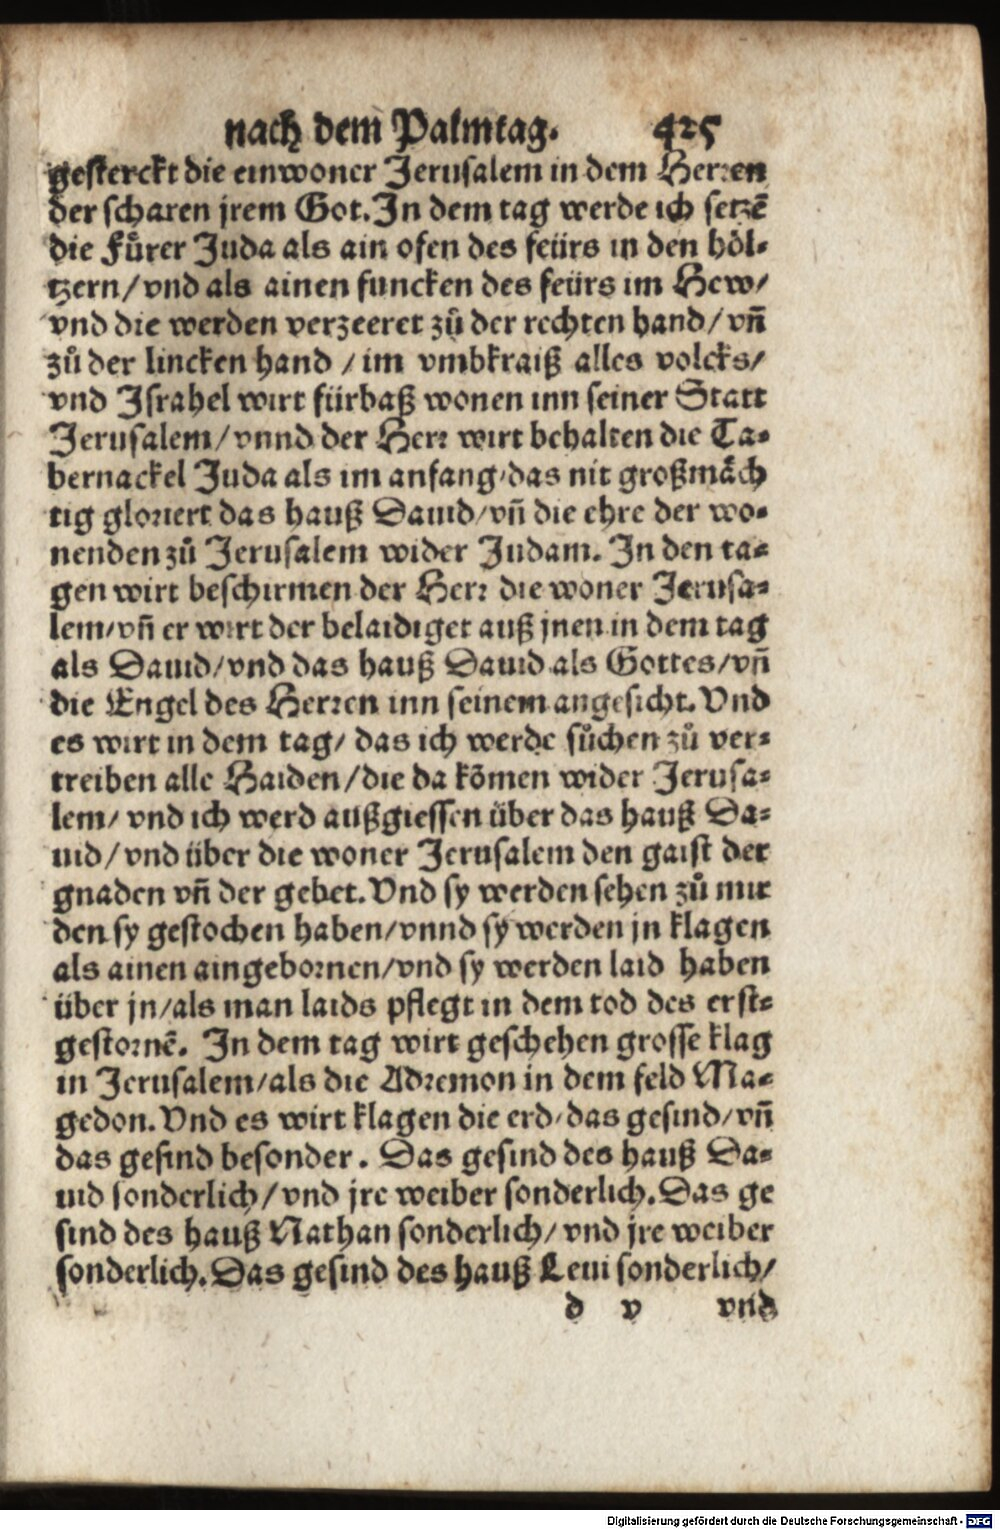 nach dem Palmtag. 425
gesterckt die einwoner Jerusalem in dem Herren
der scharen jrem Got. In dem tag werde ich setzē
die Fuͤrer Juda als ain ofen des feürs in den hoͤl⸗
tzern/vnd als ainen funcken des feürs im Hew/
vnd die werden verzeeret zuͦ der rechten hand/vn̄
zuͦ der lincken hand / im vmbkraiß alles volcks/
vnd Israhel wirt fürbaß wonen inn seiner Statt
Jerusalem/vnnd der Herr wirt behalten die Ta⸗
bernackel Juda als im anfang/das nit großmaͤch
tig gloriert das hauß Dauid/vn̄ die ehre der wo⸗
nenden zuͦ Jerusalem wider Judam. In den ta⸗
gen wirt beschirmen der Herr die woner Jerusa⸗
lem/vn̄ er wirt der belaidiget auß jnen in dem tag
als Dauid/vnd das hauß Dauid als Gottes/vn̄
die Engel des Herren inn seinem angesicht. Vnd
es wirt in dem tag/ das ich werde suͦchen zuͦ ver⸗
treiben alle Haiden/die da kōmen wider Jerusa⸗
lem/ vnd ich werd außgiessen über das hauß Da⸗
uid/vnd über die woner Jerusalem den gaist der
gnaden vn̄ der gebet. Vnd sy werden sehen zuͦ mir
den sy gestochen haben/vnnd sy werden jn klagen
als ainen aingebornen/vnd sy werden laid haben
über jn/als man laids pflegt in dem tod des erst⸗
gestornē. In dem tag wirt geschehen grosse klag
in Jerusalem/als die Adremon in dem feld Ma⸗
gedon. Vnd es wirt klagen die erd/das gesind/vn̄
das gesind besonder. Das gesind des hauß Da⸗
uid sonderlich/vnd jre weiber sonderlich. Das ge
sind des hauß Nathan sonderlich/ vnd jre weiber
sonderlich. Das gesind des hauß Leui sonderlich/
d v vnd
Digitalisierung gefördert durch die Deutsche Forschungsgemeinschaft - DFG